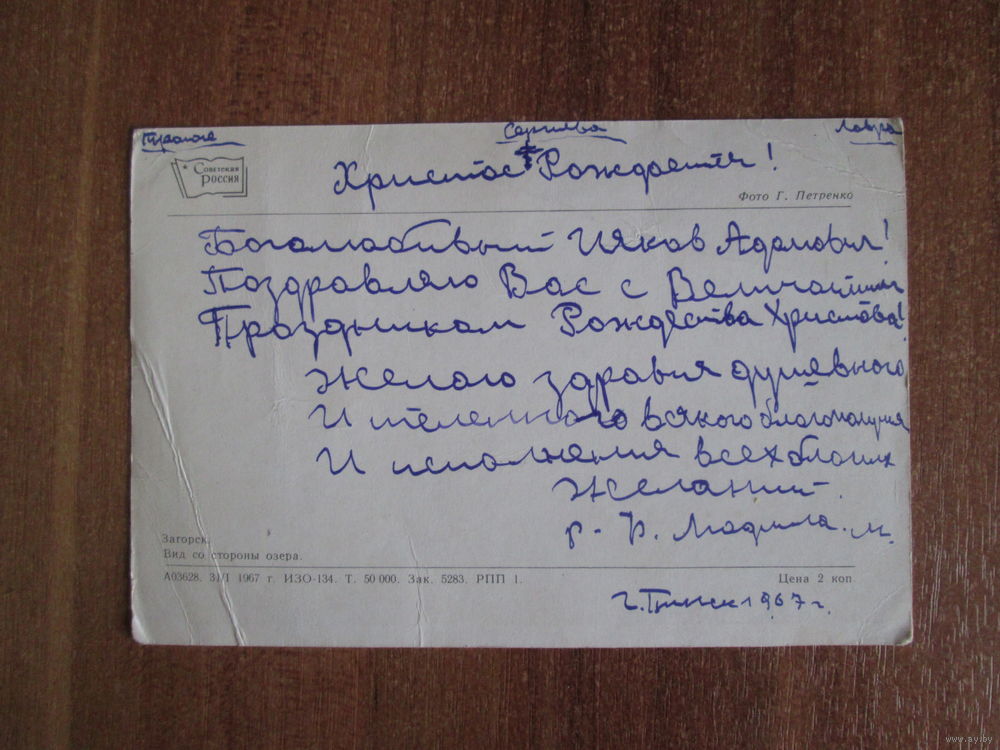 Троице Сергиева Лавра
Советская
РОССИЯ
Христос Рождается!
Фото Г. Петренко
Боголюбивый Ияков Адамович!
Поздравляю Вас с Величайшим
Праздником Рождества Христова!
Желаю здравия душевного
И телесного всякого благополучия
И исполнения всех благих
Желаний.
р. Людмила. м.
Загорск.
Вид со стороны озера.
А03628. 3/I 1967 г. ИЗО-134. Т. 50 000. Зак. 5283. РПП 1.
Цена 2 коп
г. Пинск 1967 г.
www.ay.by